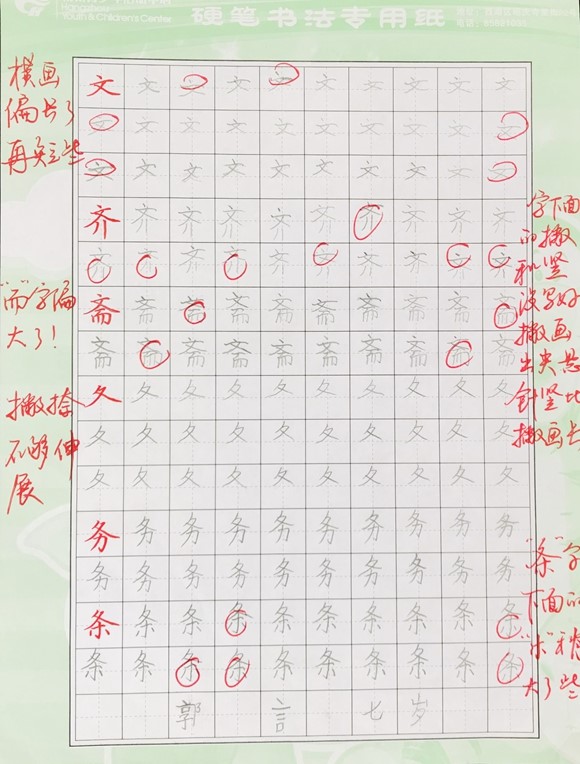 Hangzhou
Youth & Children's Center
硬笔书法专用纸
横画
偏长了
再短些
"而"字偏
大了!
撇捺
不够伸
展
文文文文文文文文文文
文文文文文文文文文文
文文文文文文文文文文
齐齐齐齐齐齐齐齐齐齐
齐齐齐齐齐齐齐齐齐齐
斋斋斋斋斋斋斋斋斋斋
斋斋斋斋斋斋斋斋斋斋
夂夂夂夂夂夂夂夂夂夂
夂夂夂夂夂夂夂夂夂夂
夂夂夂夂夂夂夂夂夂夂
务务务务务务务务务务
务务务务务务务务务务
条条条条条条条条条条
条条条条条条条条条条
郭言七岁
字下面
的撇
和竖
没写好
撇画
出尖悬
针竖比
撇画长
"条"字
下面的
"木"稍
大了些